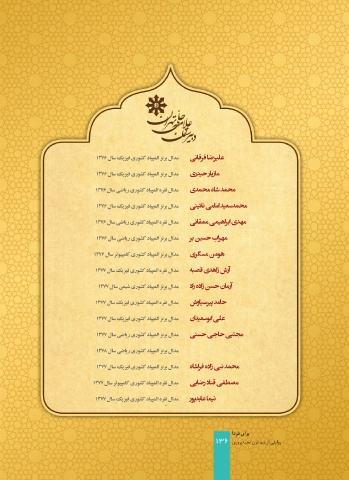 دبیرستان علامه حلی تهران
علیرضا فرقانی مدال برنز المپیاد کشوری فیزیک، سال ۱۳۷۶
مازیار حیدری مدال برنز المپیاد کشوری فیزیک، سال ۱۳۷۶
محمد شاه محمدی مدال نقره المپیاد کشوری ریاضی سال ۱۳۷۶
محمدسعید امامی نائینی مدال برنز المپیاد کشوری فیزیک، سال ۱۳۷۶
مهدی ابراهیمی ممقانی مدال نقره المپیاد کشوری ریاضی سال ۱۳۷۶
مهراب حسین بر مدال برنز المپیاد کشوری ریاضی سال ۱۳۷۶
هومن عسگری مدال برنز المپیاد کشوری کامپیوتر سال ۱۳۷۶
آرش زاهدی قصبه مدال برنز المپیاد کشوری فیزیک، سال ۱۳۷۷
آرمان حسن زاده راد مدال برنز المپیاد کشوری شیمی سال ۱۳۷۷
حامد پیرسیاوش مدال نقره المپیاد کشوری فیزیک، سال ۱۳۷۷
علی ابوسعیدیان مدال برنز المپیاد کشوری فیزیک، سال ۱۳۷۷
مجتبی حاجی حسنی مدال برنز المپیاد کشوری ریاضی سال ۱۳۷۷
مدال برنز المپیاد کشوری ریاضی سال ۱۳۷۸
محمد نبی زاده فراشاه مدال برنز المپیاد کشوری فیزیک، سال ۱۳۷۷
مصطفی قناد رضایی مدال نقره المپیاد کشوری کامپیوتر سال ۱۳۷۷
نیما عابدپور مدال نقره المپیاد کشوری فیزیک، سال ۱۳۷۷
برای فردا
۱۳۶